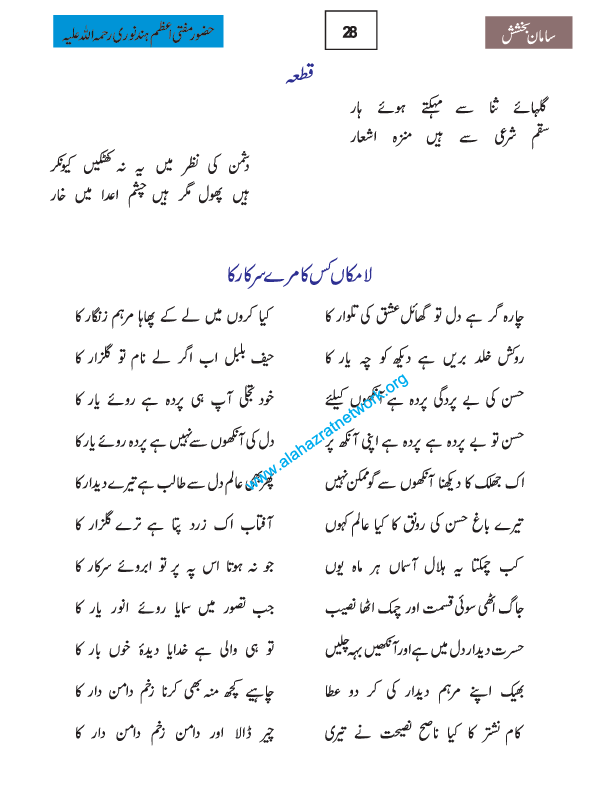 سامان بخشش
28
حضور مفتی اعظم ہند نوری رحمۃ اللہ علیہ
قطعہ
گلہائے ثنا سے مہکتے ہوئے ہار
سقم شرعی سے ہیں منزہ اشعار
دشمن کی نظر میں یہ نہ کھٹکیں کیونکر
ہیں پھول مگر ہیں چشم اعدا میں خار
لامکاں کس کا مرے سرکار کا
چارہ گر ہے دل تو گھائل عشق کی تلوار کا کیا کروں میں لے کے پھاہا مرہم زنگار کا
روکش خلد بریں ہے دیکھ کو چہ یار کا حیف بلبل اب اگر لے نام تو گلزار کا
حسن کی بے پردگی پردہ ہے آنکھوں کیلئے خود تجلی آپ ہی پردہ ہے روئے یار کا
حسن تو بے پردہ ہے پردہ ہے اپنی آنکھ پر دل کی آنکھوں سے نہیں ہے پردہ روئے یار کا
اک جھلک کا دیکھنا آنکھوں سے گو ممکن نہیں پھر بھی عالم دل سے طالب ہے تیرے دیدار کا
تیرے باغ حسن کی رونق کا کیا عالم کہوں آفتاب اک زرد پتا ہے ترے گلزار کا
کب چمکتا یہ ہلال آسماں ہر ماہ یوں جو نہ ہوتا اس پہ پر تو ابروئے سرکار کا
جاگ اٹھی سوئی قسمت اور چمک اٹھا نصیب جب تصور میں سمایا روئے انور یار کا
حسرت دیدار دل میں ہے اور آنکھیں بہہ چلیں تو ہی والی ہے خدایا دیدۂ خوں بار کا
بھیک اپنے مرہم دیدار کی کر دو عطا چاہیے کچھ منہ بھی کرنا زخم دامن دار کا
کام نشتر کا کیا ناصح نصیحت نے تیری چیر ڈالا اور دامن زخم دامن دار کا
www.alahazratnetwork.org